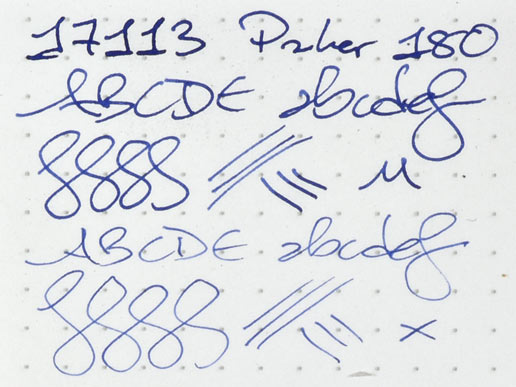 17113 Parker 180
ABCDE abcdefg
M
ABCDE abcdefg
x